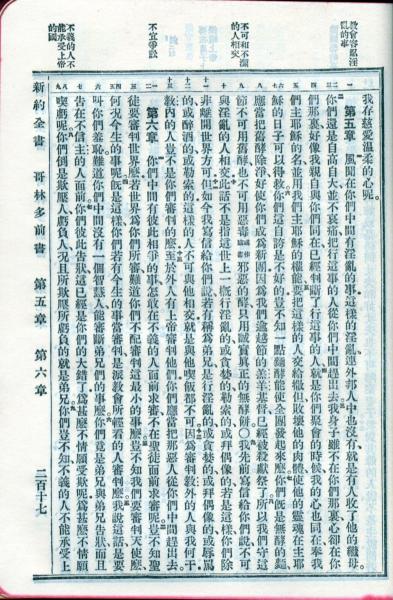 教會容縱淫
亂的事
不可和不潔
的人相交
不宜爭訟
不義的人不
能承受上帝
的國
我存慈愛溫柔的心呢。
第五章 風聞在你們中間有淫亂的事這樣的淫亂連外邦人中也沒有就是有人收了他的繼母
你們還是自高自大並不哀痛把行這事的人從你們中間趕出去我身子雖不在你們那裏心卻在你
們那裏好像我親自與你們同在已經判斷了行這事的人就是你們聚會的時候我的心也同在奉我
們主耶穌的名並用我們主耶穌的權能要把這樣的人交給撒但敗壞他的肉體使他的靈魂在主耶
穌的日子可以得救你們這自誇是不好的豈不知一點麵酵能使全團發起來麼你們旣是無酵的麵
應當把舊酵除淨好使你們成爲新團因爲我們逾越節的羔羊基督已經被殺獻祭了所以我們守這
節不可用舊酵也不可用惡毒邪惡的酵只用誠實眞正的無酵餅○我先前寫信給你們說不可
與淫亂的人相交此話不是指這世上一概行淫亂的或貪婪的勒索的或拜偶像的若是這樣你們除
非離開世界方可但如今我寫信給你們說若有稱爲弟兄是行淫亂的或貪婪的或拜偶像的或辱罵
的或醉酒的或勒索的這樣的人不可與他相交就是與他喫飯都不可因爲審判教外的人與我何干
教內的人豈不是你們審判的麼至於外人有上帝審判他們你們應當把那惡人從你們中間趕出去
第六章 你們中間有彼此相爭的事怎敢在不義的人面前求審不在聖徒面前求審呢豈不知聖
徒要審判世界麼若世界爲你們所審難道你們不配審判這最小的事麼豈不知我們要審判天使麼
何況今生的事呢旣是這樣你們若有今生的事當審判是派教會所輕看的人審判麼我說這話是要
叫你們羞恥難道你們中間沒有一個智慧人能審斷弟兄們的事麼你們竟是弟兄與弟兄告狀而且
告在不信主的人面前你們彼此告狀這已經是你們的大錯了爲甚麼不情願受欺呢爲甚麼不情願
喫虧呢你們倒是欺壓人虧負人況且所欺壓所虧負的就是弟兄你們豈不知不義的人不能承受上
新約全書 哥林多前書 第五章 第六章 二百十七